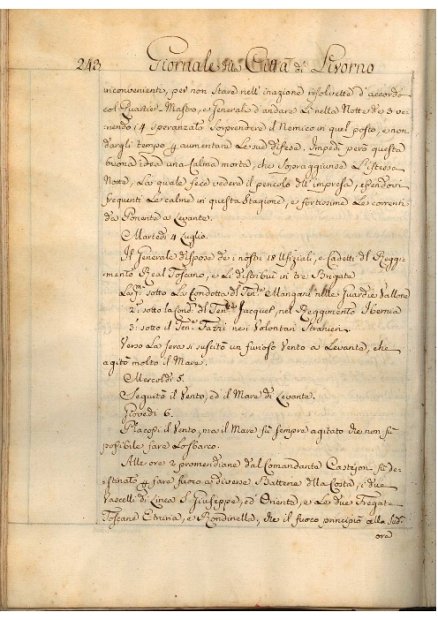 243 Giornale Città di Livorno
inconveniente, per non stare nell'inazione risolvette d'accordo
col Quartier Mastro, e Generale d'andare Lì nella Notte de 3 ve
nendo i 4 speranzato sorprendere il Nemico in quel posto, e non
dargli tempo aumentare Le sue difese. Impedì però questa
buona idea una Calma morta, che sopraggiunse L'istessa
Notte, La quale fece vedere il pericolo dell'impresa, essendovi
frequenti Le Calme in questa Stagione, e fortissime Le correnti
da Ponente a Levante.
Martedì 4 Luglio.
Il Generale dispose de i nostri 18 Uffiziali, e Cadetti del Reggi
mento Real Toscano, e Li distribuì in tre Brigate
La sotto La Condotta del Ten. Mangani nelle Guardie Vallone
2. sotto la cond. del Ten. Jacquel, nel Reggimento Ibernia
3. sotto il Ten. Fabri nei Volontari Stranieri
Verso La sera si suscitò un furioso Vento a Levante, che
agitò molto il Mare.
Mercoldì 5.
Seguitò il Vento, ed il Mare di Levante.
Giovedì 6.
Placossi il Vento, ma il Mare fu sempre agitato che non fu
possibile fare Lo sbarco.
Alle ore 2 pomeridiane dal Comandante Castejon fu de
stinato fare fuoco a diverse Batterie della Costa, i due
Vascelli di Linea S. Giuseppe, ed Oriente, e Le due Fregate
Toscane Etruria, e Rondinella, che il fuoco principiò alla sud.
ora